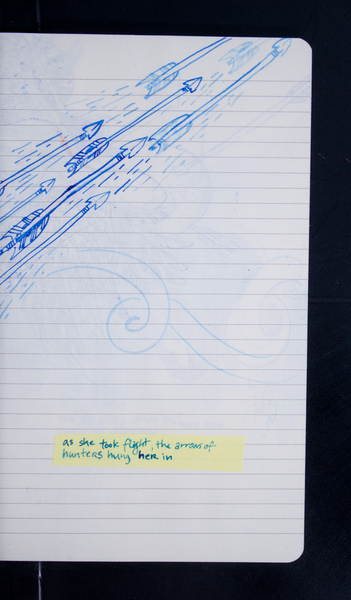 as she took flight, the arrows of
hunters hung her in